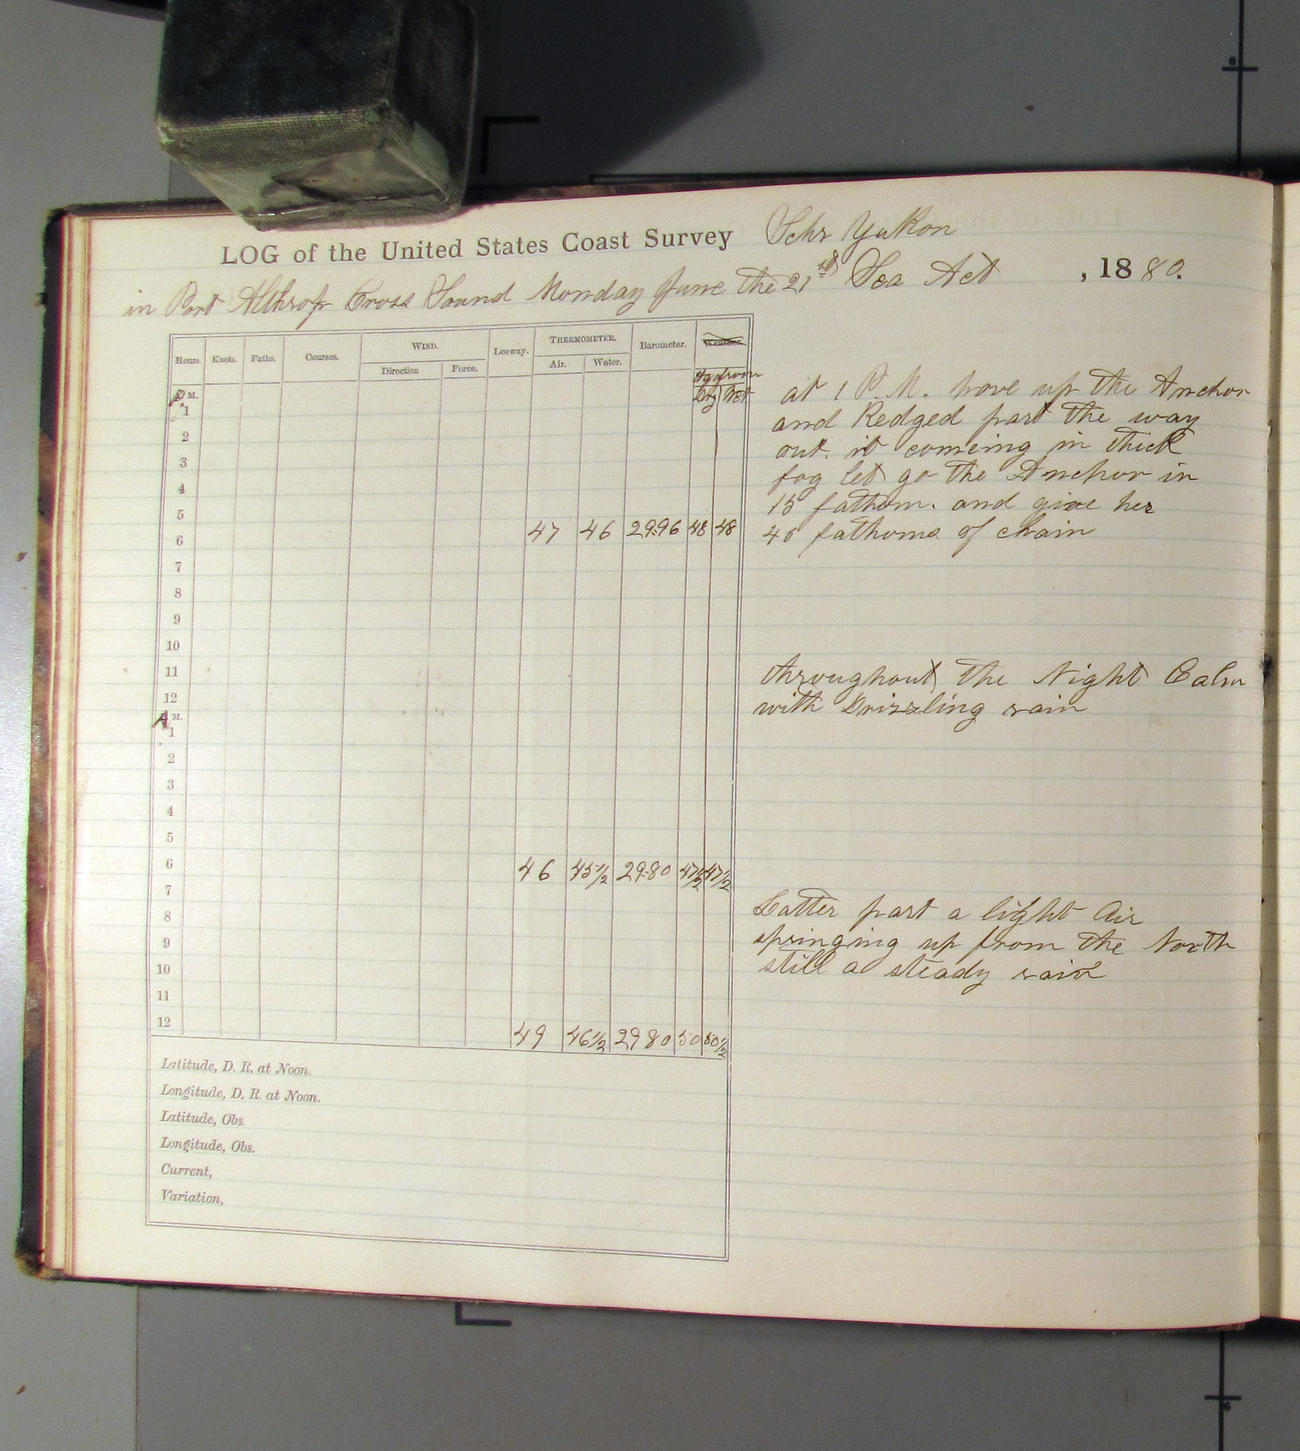 LOG of the United States Coast Survey Schr Yukon
in Port Althrop Cross Sound Monday June the 21st Sea Act , 1880.
Hours. Knots. Faths. Courses. WIND. Leeway. THERMOMETER. Barometer. Weather.
Direction Force. Air. Water.
Hygrom
Dry Wet
P M.
1
2
3
4
5
6 47 46 29.96 48 48
7
8
9
10
11
12
A M.
1
2
3
4
5
6 46 45½ 29.80 47½ 47½
7
8
9
10
11
12 49 46½ 29 80 50 50½
Latitude, D. R. at Noon.
Longitude, D. R. at Noon.
Latitude, Obs.
Longitude, Obs.
Current,
Variation,
at 1 P. M. hove up the Anchor
and Kedged part the way
out. it comeing in thick
fog let go the Anchor in
15 fathom. and give her
40 fathoms of chain
throughout the Night Calm
with Drizzling rain
Latter part a light Air
springing up from the North
still a steady rain
6
6